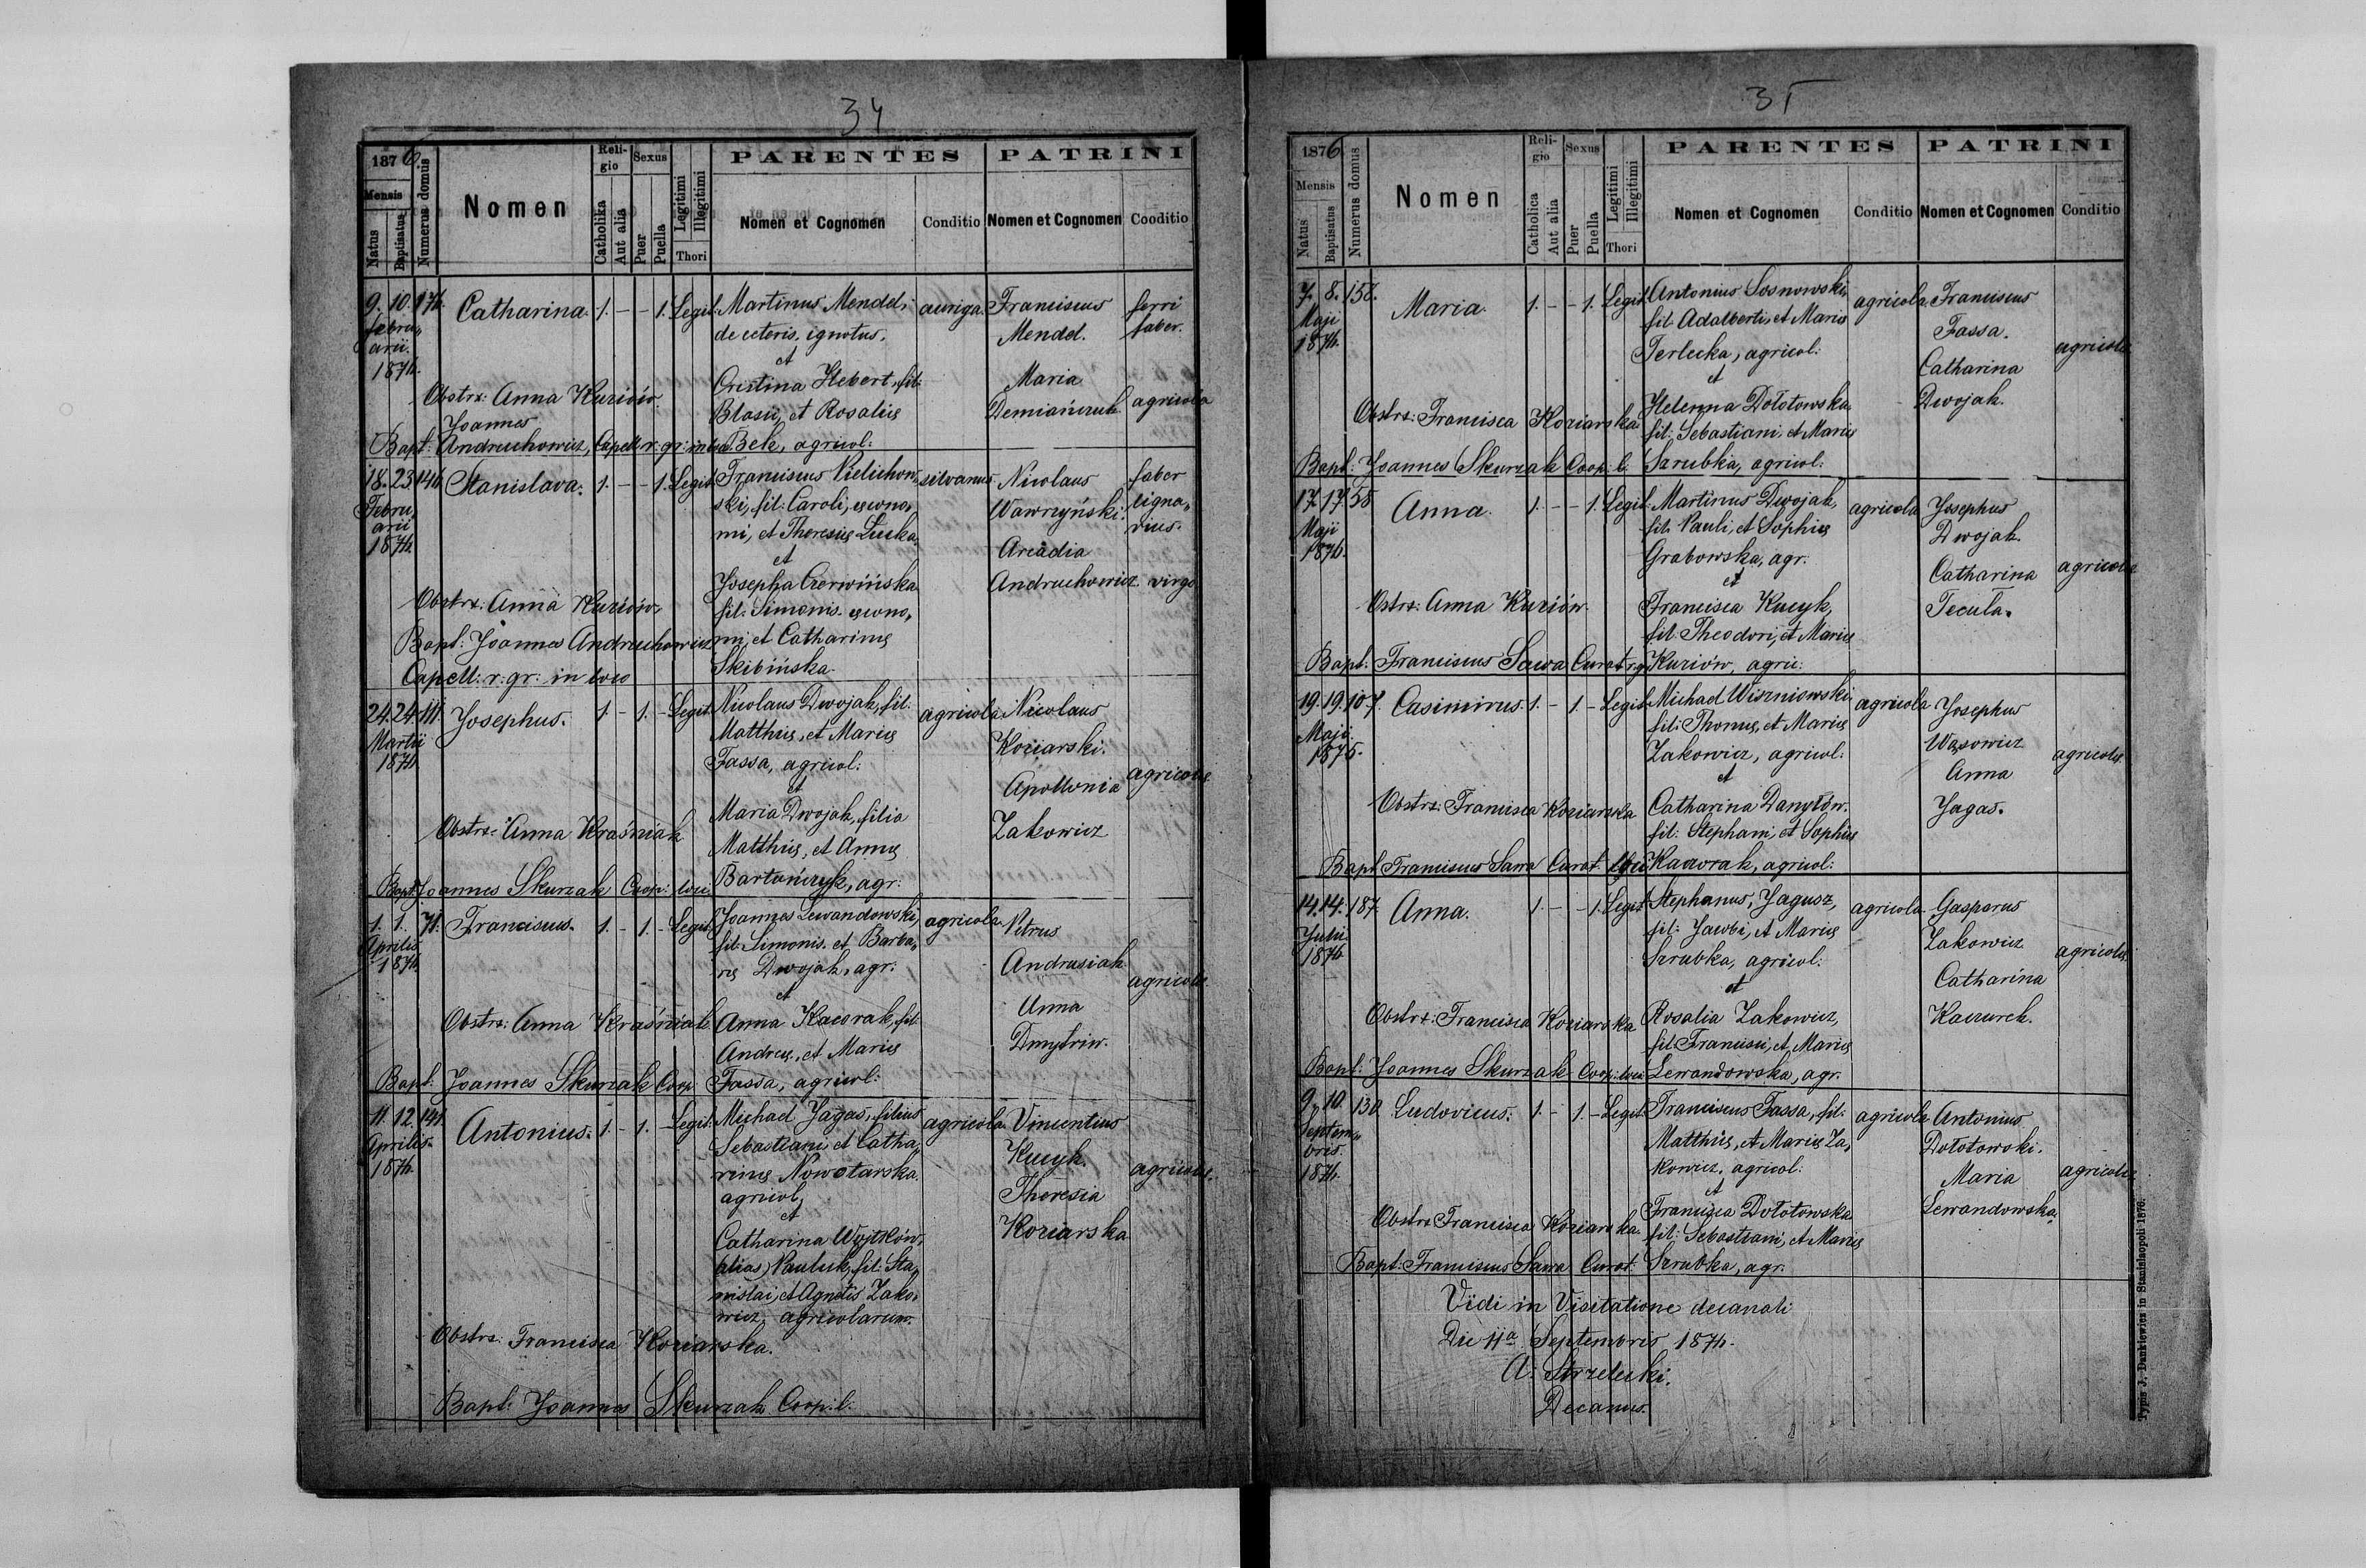 34
1876
Mensis
Natus
Baptisatus
Numerus domus
Nomen
Religio
Catholika
Aut alia
Sexus
Puer
Puella
Legitimi
Illegitimi
Thori
PARENTES
Nomen et Cognomen
Conditio
PATRINI
Nomen et Cognomen
Cooditio
9. 10. 176. Catharina. 1. - - 1. Legit. Martinus Mendel, auriga. Franciscus ferri
Febru„ de ceteris, ignotus. Mendel. faber.
arii. et
1876. Cristina Hebert, fil: Maria
Obstrx: Anna Kuriów. Blasii, et Rosaliæ Demiańczuk agricola
Joannes
Bapt: Andruchowicz, Capell: r: gr: in loco Bek, agricol:
18. 23 146 Stanislava. 1. - - 1. Legit. Franciscus Vielichow„ silvanus. Nicolaus faber
Febru„ ski, fil: Caroli, œcono„ Wawrzyński. ligna„
arii mi, et Theresiæ Łucka. rius.
1876 et Arcadia
Josepha Czerwińska Andruchowicz virgo
Obstrx: Anna Kuriów. fil: Simonis œcono„
Bapt: Joannes Andruchowicz mi, et Catharinæ
Capell: r: gr: in loco Skibińska.
24. 24. 111. Josephus. 1. - 1. - Legit. Nicolaus Dwojak, fil. agricola. Nicolaus
Martii Matthiæ, et Mariæ Koziarski.
1876 Fassa, agricol:
et Apollonia agricolæ.
Maria Dwojak, filia Zakowicz
Obstrx: Anna Kraśniak Matthiæ, et Annæ
Bapt: Joannes Skurzak Coop: loci. Bartończyk, agr:
1. 1. 71. Franciscus. 1. - 1. - Legit. Joannes Lewandowski, agricola. Petrus
Aprilis fil: Simonis et Barba„ Andrusiak
1876 ræ Dwojak, agr: agricolæ.
et Anna
Obstrx: Anna Kraśniak Anna Kaczorak, fil: Dmytriw.
Andreæ, et Mariæ
Bapt: Joannes Skurzak Coop. Fassa, agricol:
11. 12. 141. Antonius. 1. - 1. - Legit. Michael Jagas, filius agricola. Vincentius
Aprilis. Sebastiani et Catha„ Kucyk.
1876 rinæ Nowotarska. agricolæ.
agricol, Theresia
et Koziarska
Catharina Wojtków,
alias) Pauluk, fil: Sta„
nislai, et Agnetis Zako„
wicz, agricolarum.
Obstrx: Francisca Koziarska.
Bapt: Joannes Skurzak Coop: l:
35
1876
Mensis
Natus
Baptisatus
Numerus domus
Nomen
Religio
Catholica
Aut alia
Sexus
Puer
Puella
Legitimi
Illegitimi
Thori
PARENTES
Nomen et Cognomen
Conditio
PATRINI
Nomen et Cognomen
Conditio
7. 8. 158. Maria. 1. - - 1. Legit. Antonius Sosnowski, agricola. Franciscus
Maji fil. Adalberti, et Mariæ Fassa.
1876. Terlecka, agricol: agricolæ
et Catharina
Helenna Dołotowska. Dwojak.
Obstrx: Francisca Koziarska fil: Sebastiani, et Mariæ
Bapt: Joannes Skurzak Coop: l: Szrubka, agricol:
17. 17. 58 Anna. 1. - - 1. Legit. Martinus Dwojak, agricola Josephus
Maji fil. Pauli, et Sophiæ Dwojak.
1876. Grabowska, agr: agricolæ
et Catharina
Ostrx: Anna Kuriów. Francisca Kucyk, Tecula.
fil: Theodori, et Mariæ
Bapt: Franciscus Sawa Curat. r. g. Kuriów, agric:
19. 19. 107. Casimirus. 1. - 1. - Legit. Michael Wiszniowski agricola Josephus
Maji fil: Thomæ, et Mariæ Wąsowicz
1876. Zakowicz, agricol: agricolæ
et Anna
Obstrx: Francisca Koziarska Catharina Danyłów. Jagas.
fil: Stephani, et Sophiæ
Bapt. Franciscus Sawa Curat. loci Kaczorak, agricol:
14. 14. 187 Anna. 1. - - 1. Legit. Stephanus, Jagusz, agricola. Gasparus
Julii fil: Jacobi, et Mariæ Zakowicz
1876 Szrubka, agricol: agricolæ.
et Catharina
Obstrx: Francisca Koziarska Rosalia Zakowicz, Kaczurek.
fil: Francisci, et Mariæ
Bapt: Joannes Skurzak Coop: loci Lewandowska, agr.
9. 10. 130. Ludovicus. 1. - 1. - Legit. Franciscus Fassa, fil: agricola Antonius
Septem„ Matthiæ, et Mariæ Za„ Dołotowski.
bris. kowicz, agricol: agricolæ
1876. et Maria
Obstrx: Francisca Koziarska. Francisca Dołotowska Lewandowska.
fil: Sebastiani, et Mariæ
Bapt: Franciscus Sawa Curat. Szrubka, agr.
Vidi in Visitatione decanali
Die 11ª Septembris 1876.
A: Strzelecki.
Decanus.
Typis J. Dankiewicz in Stanislaopoli 1876.